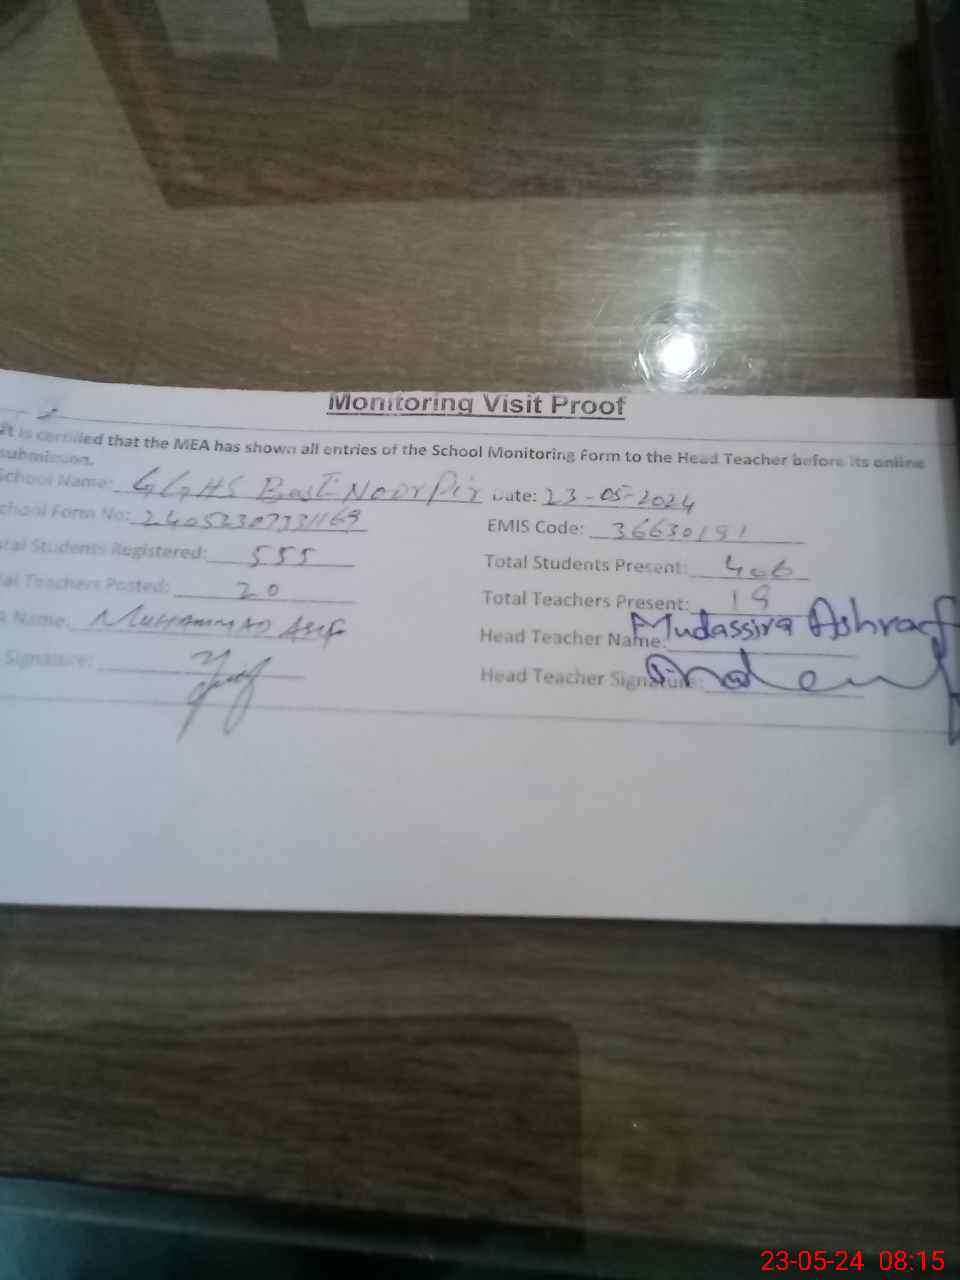 Monitoring Visit Proof
It is certified that the MEA has shown all entries of the School Monitoring Form to the Head Teacher before its online
submission.
School Name: GGHS Basti Noor Pir Date: 23-05-2024
chool Form No: EMIS Code: 36630191
tal Students Registered: 555 Total Students Present: 406
al Teachers Posted: 20 Total Teachers Present: 19
A Name: Muhammad Asif Head Teacher Name: Mudassira Ashraf
Signature: Head Teacher Signature:
23-05-24 08:15